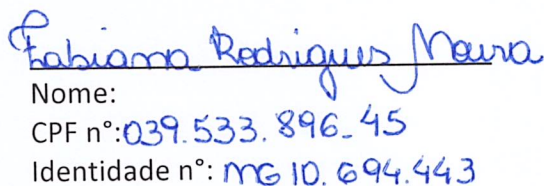 Fabiana Rodrigues Moura
Nome:
CPF n°:039.533.896-45
Identidade n°: MG 10.694.443